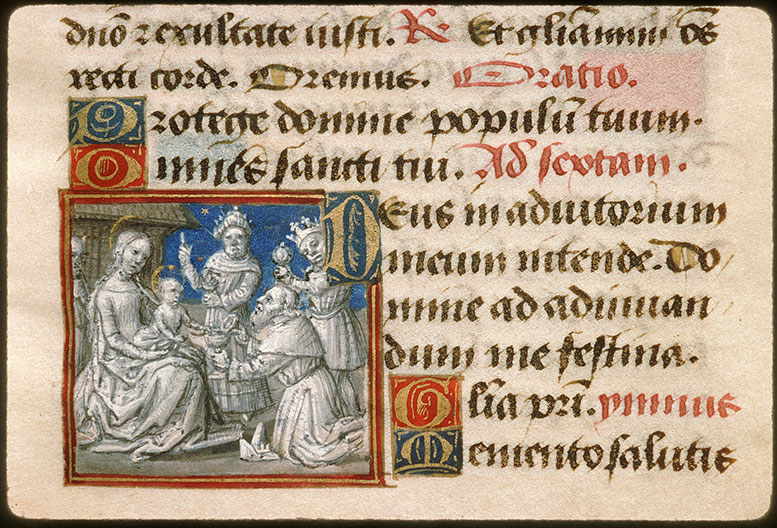 dño ⁊ exultate iusti. R. Et gl̃iamini õs
recti corde. Oremus. Oratio.
Protege domine populũ tuum.
Omnes sancti tui. Ad sextam.
Deus in adiutorium
meum intende. Do
mine ad adiuuan
dum me festina.
Gl̃ia pr̃i. ymnus
Memento salutis